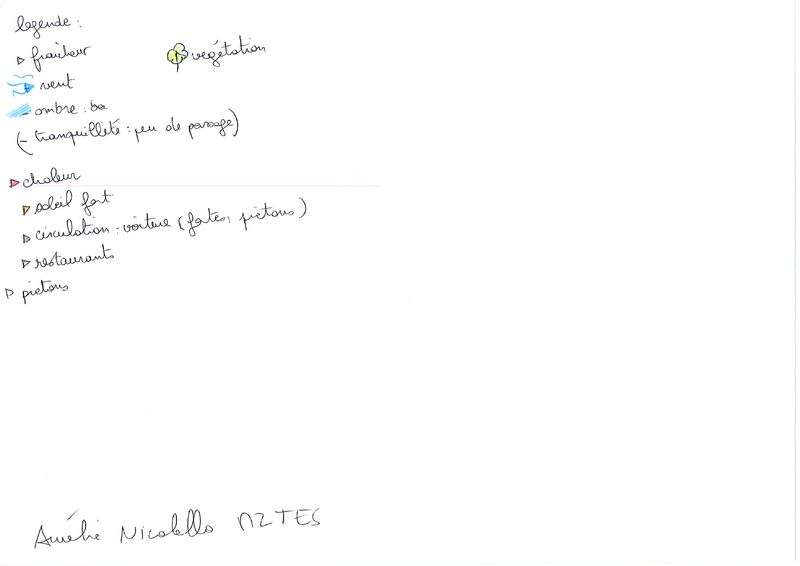 legende :
fraîcheur
végétation
vent
- ombre
(- tranquillité : peu de passage)
chaleur
soleil fort
circulation : voiture (fortes, piétons)
restaurants
piétons
Amélie Nicolello M2 TES